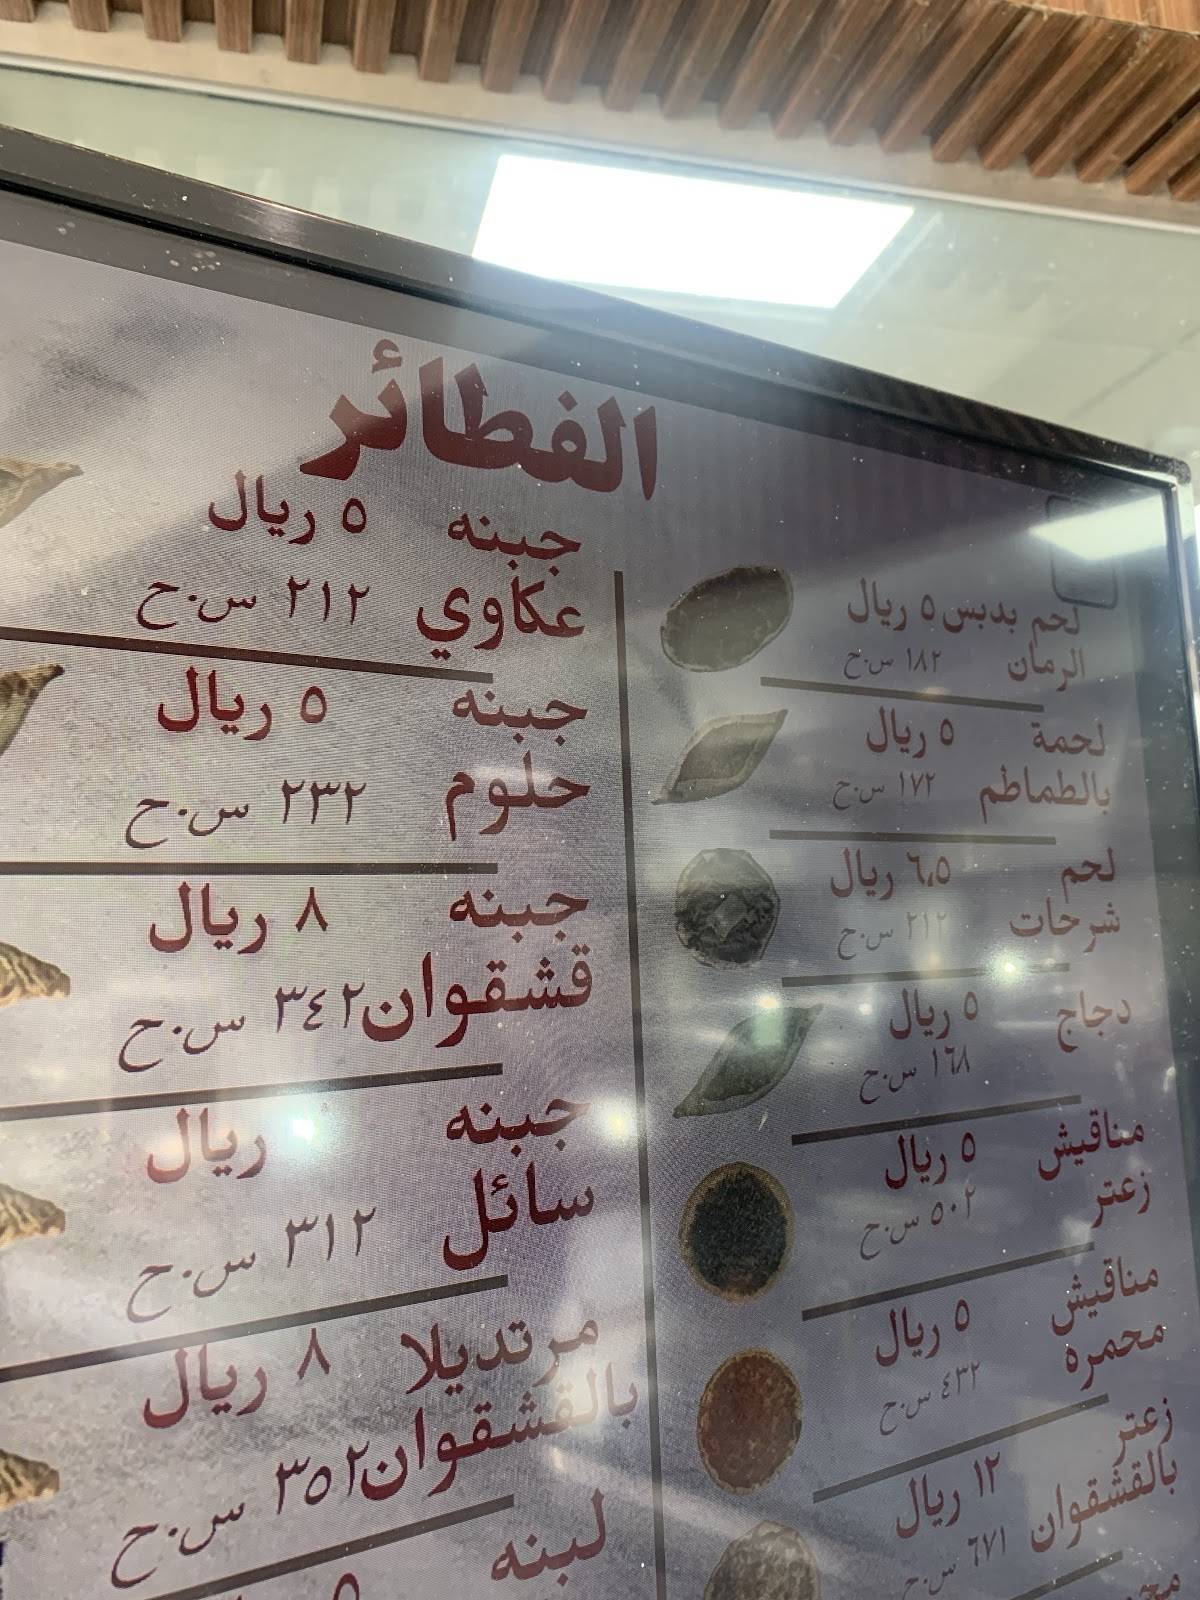 الفطائر
لحم بدبس ٥ ريال
الرمان ١٨٢ س.ح
لحمة ٥ ريال
بالطماطم ١٧٢ س.ح
لحم ٦،٥ ريال
شرحات ٢١٢ س.ح
دجاج ٥ ريال
١٦٨ س.ح
مناقيش ٥ ريال
زعتر ٥٠٢ س.ح
مناقيش ٥ ريال
محمره ٤٣٢ س.ح
زعتر ١٢ ريال
بالقشقوان ٦٧١ س.ح
جبنه ٥ ريال
عكاوي ٢١٢ س.ح
جبنه ٥ ريال
حلوم ٢٣٢ س.ح
جبنه ٨ ريال
قشقوان ٣٤٢ س.ح
جبنه ريال
سائل ٣١٢ س.ح
مرتديلا ٨ ريال
بالقشقوان ٣٥٢ س.ح
لبنه ٥